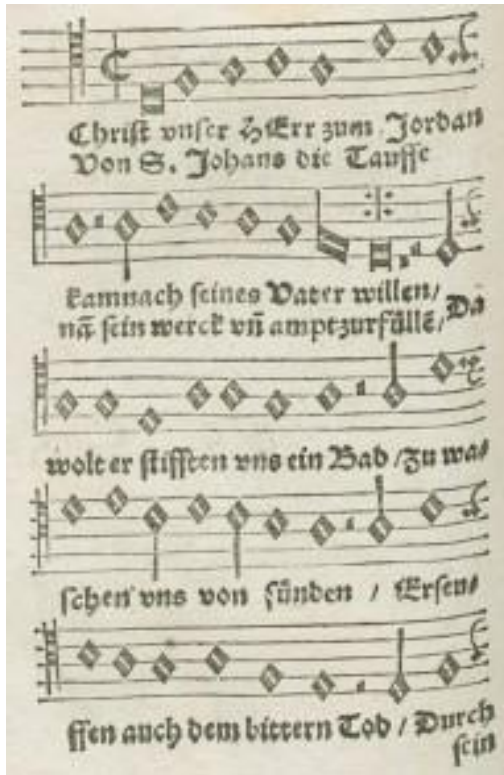 Christ vnser HErr zum Jordan
Von S. Johans die Tauffe
kamnach seines Vater willen/
nã sein werck vñ amptzurfüllẽ/ Da
wolt er stifften vns ein Bad /zu wa⸗
schen vns von sünden / Ersen⸗
ffen auch dem bittern Tod / Durch
sein